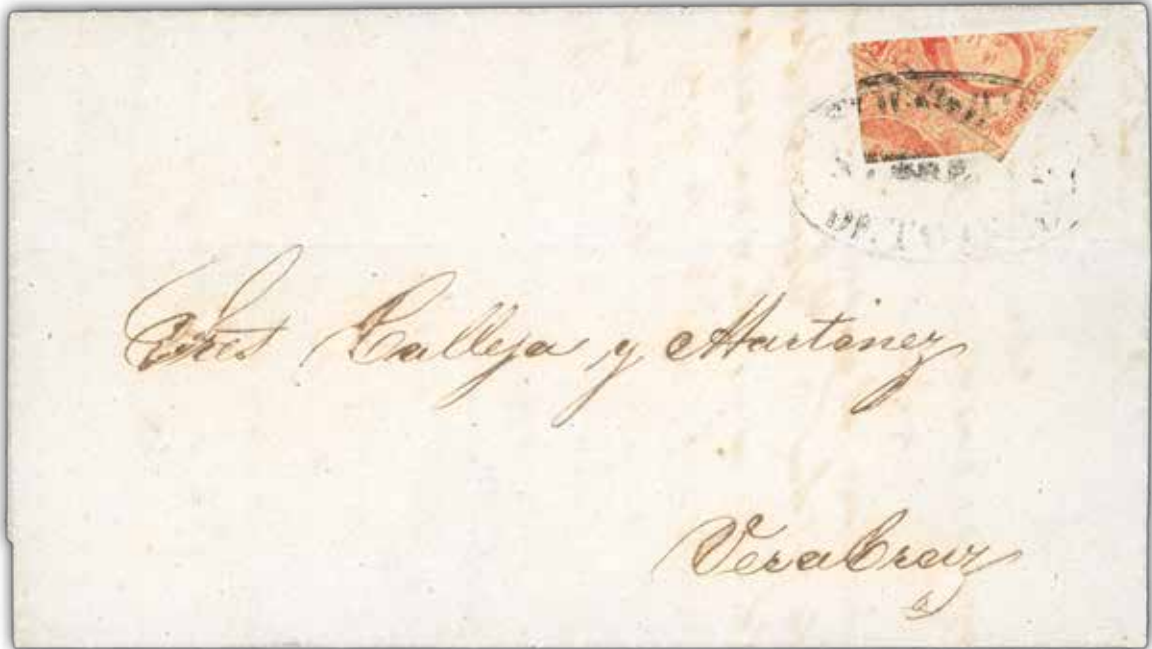 Sres Calleja y Martinez
VeraCruz